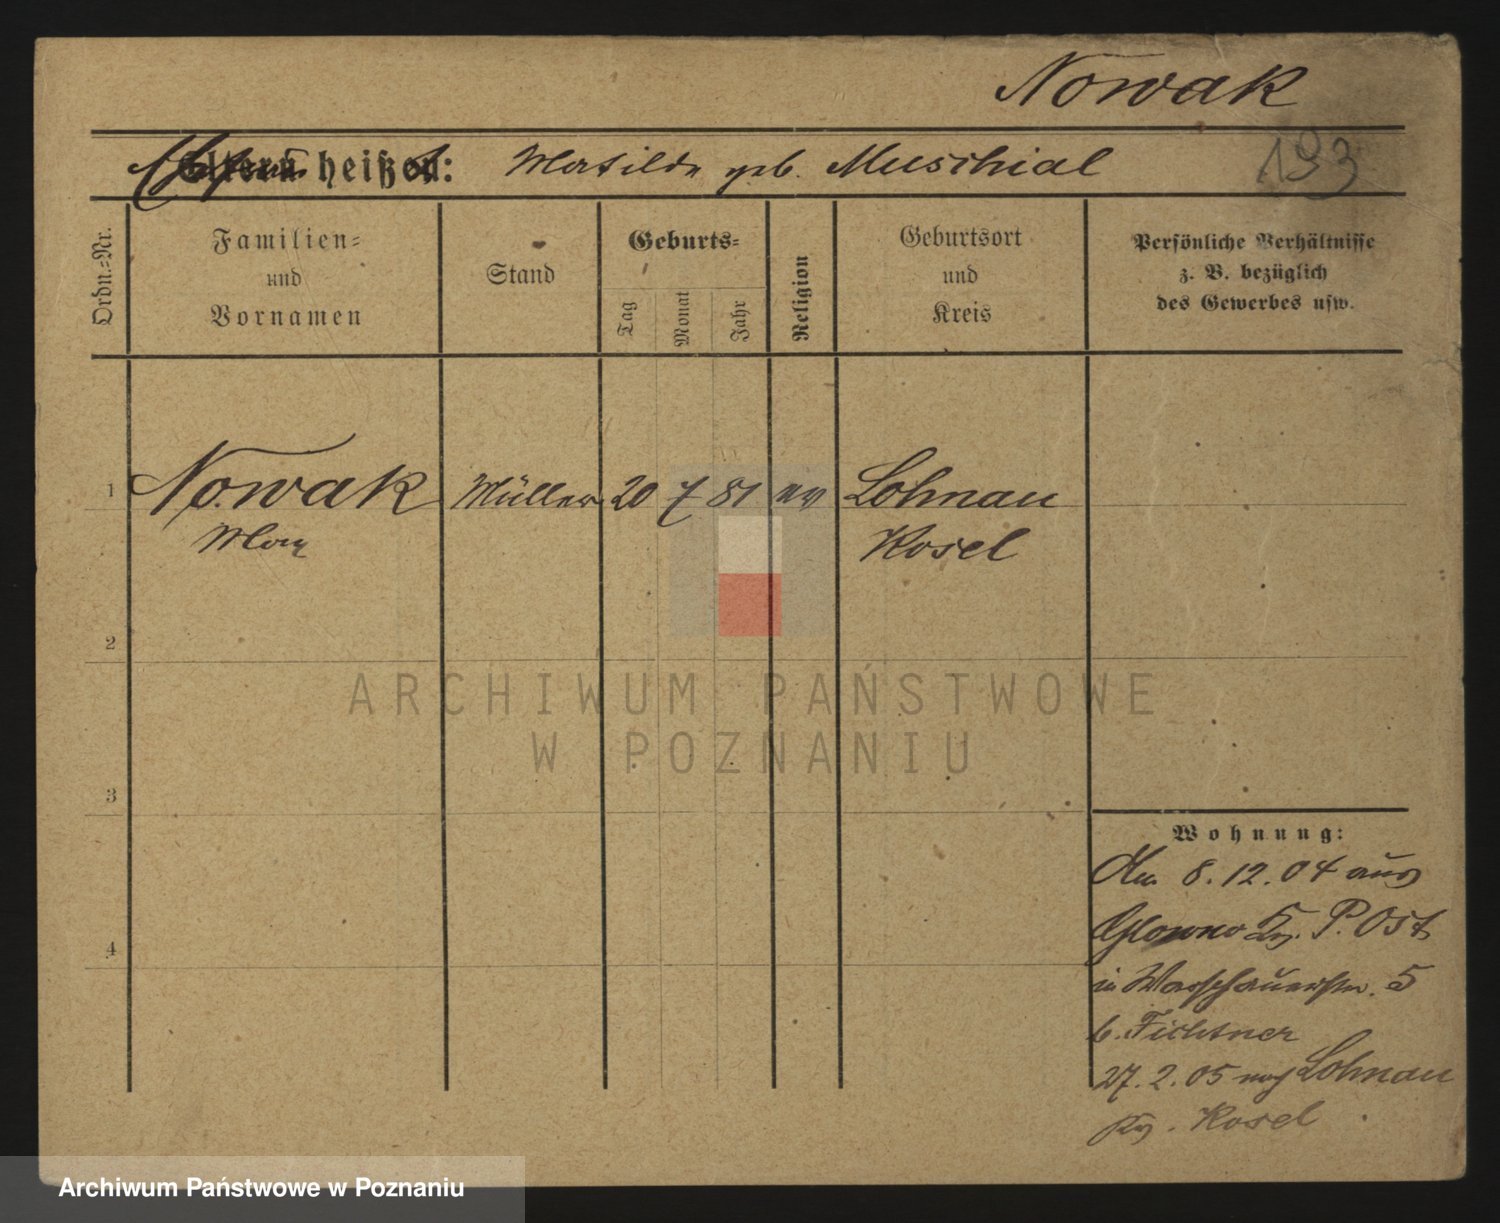 Nowak
193
Eltern heißen: Matilde geb. Muschial
Ordn.=Nr.
Familien=
und
Vornamen
Stand
Geburts=
Tag
Monat
Jahr
Religion
Geburtsort
und
Kreis
Persönliche Verhältnisse
z. B. bezüglich
des Gewerbes usw.
1
Nowak Müller 20 7 81 Lohnau
Max Kosel
2
ARCHIWUM PAŃSTWOWE
W POZNANIU
3
Wohnung:
8. 12. 04 aus
Glowno Kr. P. Ost
in Warschauerstr. 5
b. Fichtner
27. 2. 05 nach Lohnau
Kr. Kosel
4
Archiwum Państwowe w Poznaniu